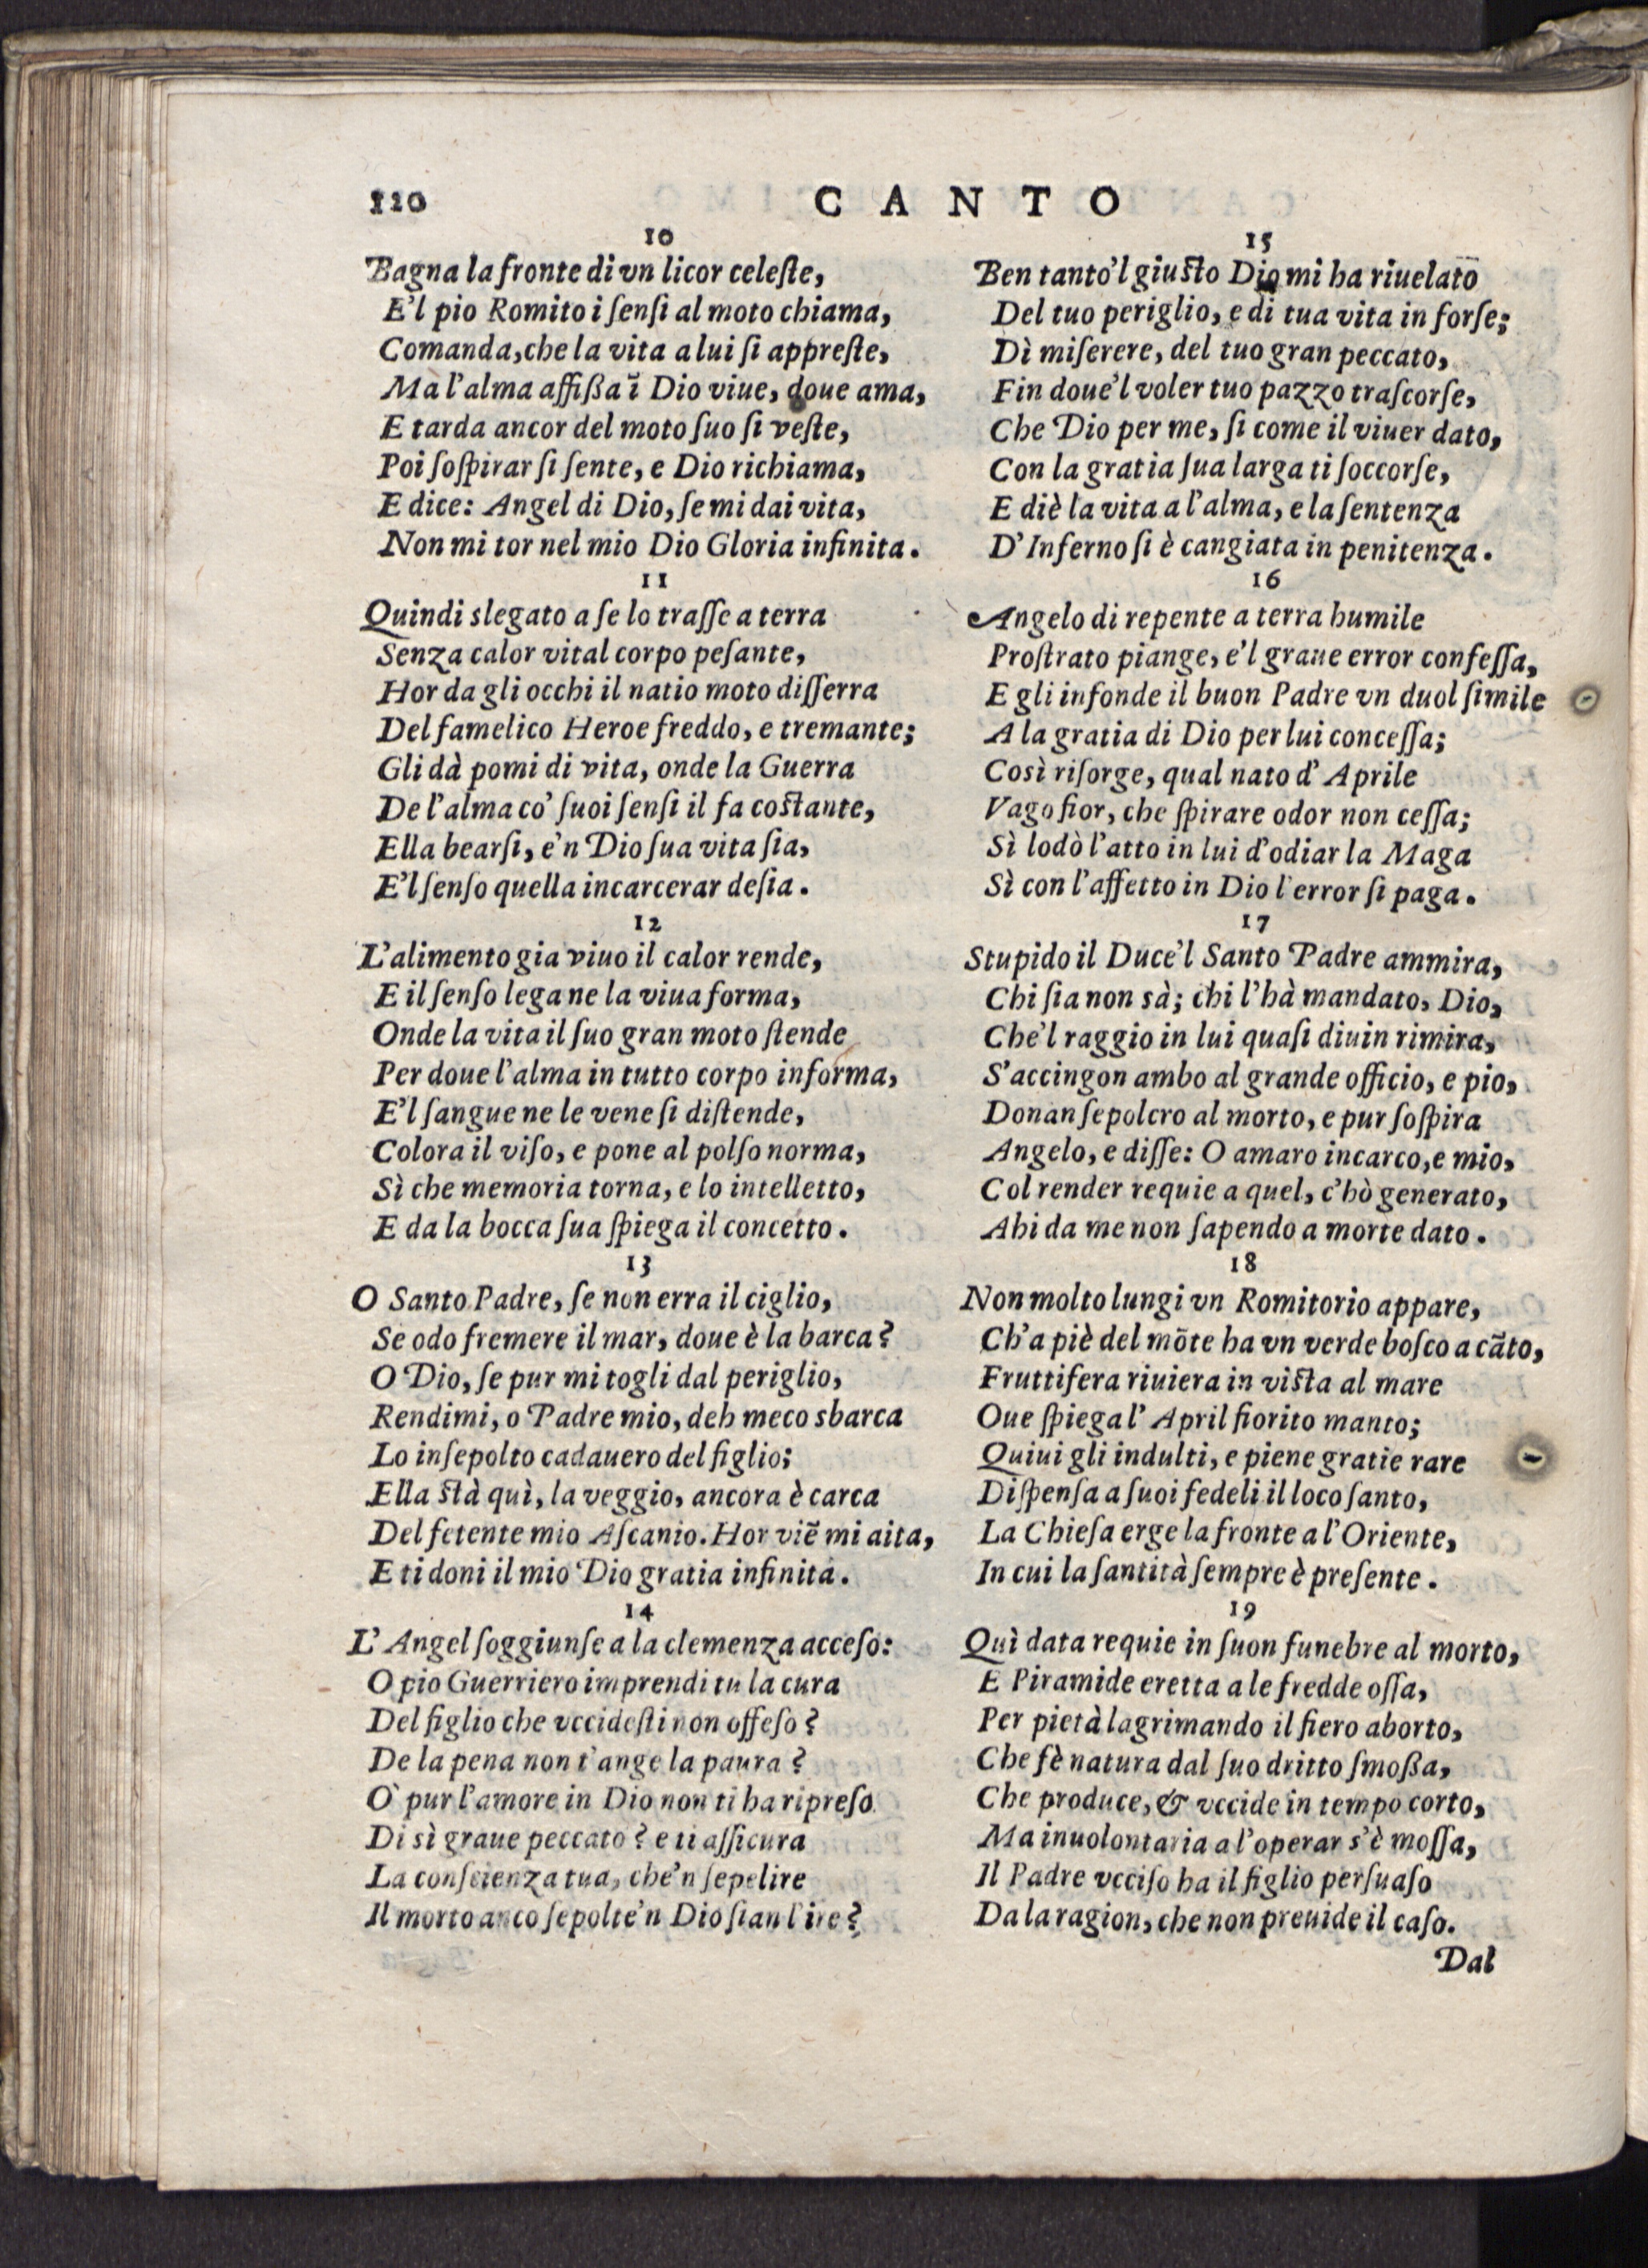 120
CANTO
10
Bagna la fronte di vn licor celeſte,
E'l pio Romito i ſenſi al moto chiama,
Comanda, che la vita a lui ſi appreſte,
Ma l'alma affißa ī Dio viue, doue ama,
E tarda ancor del moto ſuo ſi veſte,
Poi ſoſpirar ſi ſente, e Dio richiama,
E dice: Angel di Dio, ſe mi dai vita,
Non mi tor nel mio Dio Gloria infinita.
11
Quindi slegato a ſe lo traſſe a terra
Senza calor vital corpo peſante,
Hor da gli occhi il natio moto diſſerra
Del famelico Heroe freddo, e tremante;
Gli dà pomi di vita, onde la Guerra
De l'alma co' ſuoi ſenſi il fa coſtante,
Ella bearſi, e'n Dio ſua vita ſia,
E'l ſenſo quella incarcerar deſia.
12
L'alimento gia viuo il calor rende,
E il ſenſo lega ne la viua forma,
Onde la vita il ſuo gran moto ſtende
Per doue l'alma in tutto corpo informa,
E'l ſangue ne le vene ſi diſtende,
Colora il viſo, e pone al polſo norma,
Sì che memoria torna, e lo intelletto,
E da la bocca ſua ſpiega il concetto.
13
O Santo Padre, ſe non erra il ciglio,
Se odo fremere il mar, doue è la barca?
O Dio, ſe pur mi togli dal periglio,
Rendimi, o Padre mio, deh meco sbarca
Lo inſepolto cadauero del figlio;
Ella ſtà quì, la veggio, ancora è carca
Del fetente mio Aſcanio. Hor viē mi aita,
E ti doni il mio Dio gratia infinita.
14
L'Angel ſoggiunſe a la clemenza acceſo:
O pio Guerriero imprendi tu la cura
Del figlio che vccideſti non offeſo?
De la pena non t'ange la paura?
Ò pur l'amore in Dio non ti ha ripreſo
Di sì graue peccato? e ti aſſicura
La conſcienza tua, che'n ſepelire
Il morto anco ſepolte'n Dio ſian l'ire?
15
Ben tanto'l giuſto Dio mi ha riuelato
Del tuo periglio, e di tua vita in forſe;
Dì miſerere, del tuo gran peccato,
Fin doue'l voler tuo pazzo traſcorſe,
Che Dio per me, ſi come il viuer dato,
Con la gratia ſua larga ti ſoccorſe,
E diè la vita a l'alma, e la ſentenza
D'Inferno ſi è cangiata in penitenza.
16
Angelo di repente a terra humile
Proſtrato piange, e'l graue error confeſſa,
E gli infonde il buon Padre vn duol ſimile
A la gratia di Dio per lui conceſſa;
Così riſorge, qual nato d'Aprile
Vago fior, che ſpirare odor non ceſſa;
Sì lodò l'atto in lui d'odiar la Maga
Sì con l'affetto in Dio l'error ſi paga.
17
Stupido il Duce'l Santo Padre ammira,
Chi ſia non sà; chi l'hà mandato, Dio,
Che'l raggio in lui quaſi diuin rimira,
S'accingon ambo al grande officio, e pio,
Donan ſepolcro al morto, e pur ſoſpira
Angelo, e diſſe: O amaro incarco, e mio,
Col render requie a quel, c'hò generato,
Ahi da me non ſapendo a morte dato.
18
Non molto lungi vn Romitorio appare,
Ch'a piè del mōte ha vn verde boſco a cāto,
Fruttifera riuiera in viſta al mare
Oue ſpiega l'April fiorito manto;
Quiui gli indulti, e piene gratie rare
Diſpenſa a ſuoi fedeli il loco ſanto,
La Chieſa erge la fronte a l'Oriente,
In cui la ſantità ſempre è preſente.
19
Quì data requie in ſuon funebre al morto,
E Piramide eretta a le fredde oſſa,
Per pietà lagrimando il fiero aborto,
Che fè natura dal ſuo dritto ſmoßa,
Che produce, & vccide in tempo corto,
Ma inuolontaria a l'operar s'è moſſa,
Il Padre vcciſo ha il figlio perſuaſo
Da la ragion, che non preuide il caſo.
Dal